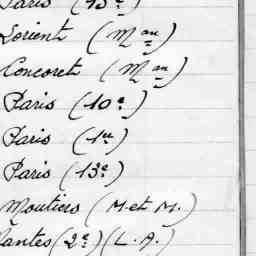 Paris (15e)
Lorient (Mau)
Concoret (Mau)
Paris (10e)
Paris (1er)
Paris (13e)
Moutiers (M. et M.)
Nantes (2e) (L. A.)